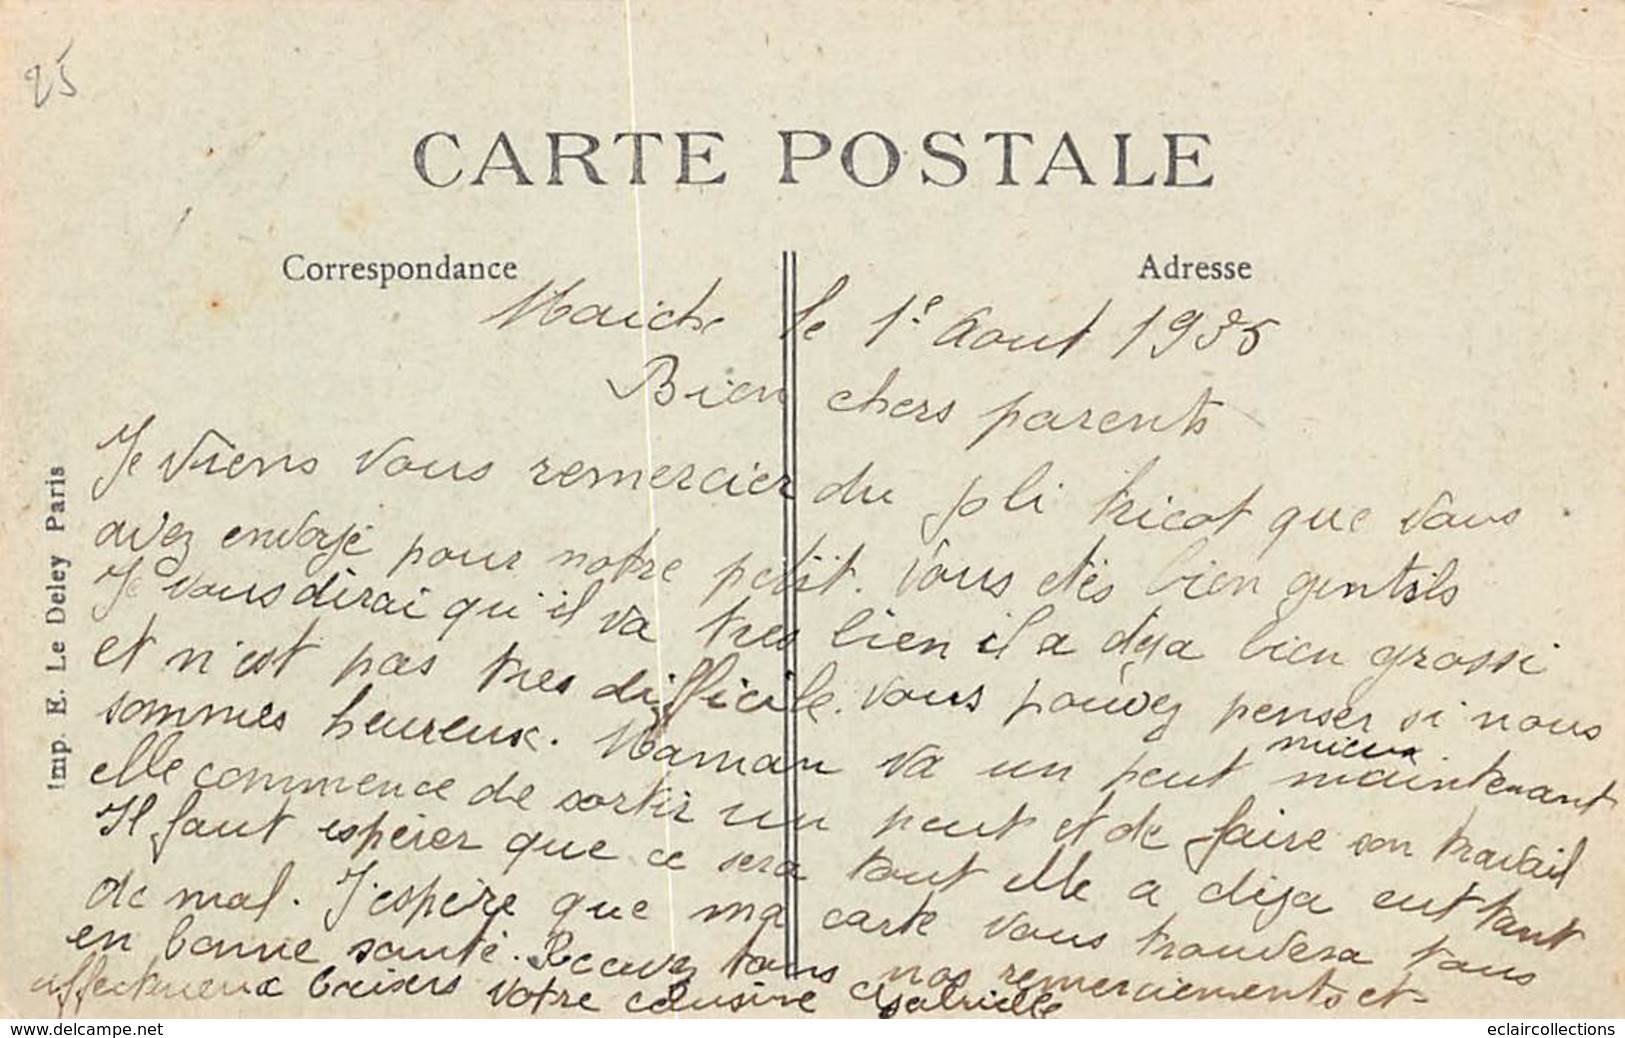 25
CARTE POSTALE
Correspondance
Adresse
Maiche le 1e Aout 1935
Bien chers parents
Je viens vous remercier du joli tricot que vous
avez envoyé pour notre petit. Vous etes bien gentils
Je vous dirai qu'il va tres bien il a deja bien grossi
et n'est pas tres difficile. Vous pouvez penser si nous
sommes heureux. Maman va un peut mieux maintenant
elle commence de sortir un peut et de faire son travail
Il faut espérer que ce sera tout elle a deja eut tant
de mal. J'espère que ma carte vous trouvera tous
en bonne santé. Recevez tous nos remerciements et
affectueux baisers votre cousine Gabrielle
Imp. E. Le Deley Paris
www.delcampe.net
eclaircollections